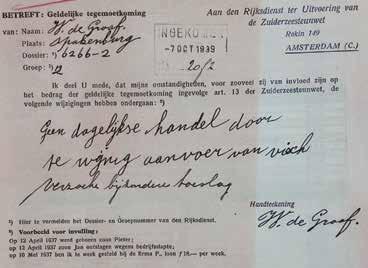 BETREFT: Geldelijke tegemoetkoming
van: Naam: W. de Graaf.
Plaats: Spakenburg
Dossier: ¹) 6266-2
Groep: ¹) 2
INGEKOMEN
-7 OCT 1939
20/2
Aan den Rijksdienst ter Uitvoering van
de Zuiderzeesteunwet
Rokin 149
AMSTERDAM (C.)
Ik deel U mede, dat mijne omstandigheden, voor zooveel zij van invloed zijn op
het bedrag der geldelijke tegemoetkoming ingevolge art. 13 der Zuiderzeesteunwet, de
volgende wijzigingen hebben ondergaan: ²)
Geen dagelijkse handel door
te wijnig aanvoer van visch
Verzoeke bijzondere toeslag
Handteekening
W. de Graaf.
¹) Hier te vermelden het Dossier- en Groepnummer van den Rijksdienst.
²) Voorbeeld voor invulling:
Op 12 April 1937 werd geboren zoon Pieter;
op 12 April 1937 zoon Jan ontslagen wegens bedrijfslapte;
op 10 Mei 1937 ben ik te werk gesteld bij de firma P., loon ƒ 18.— per week.